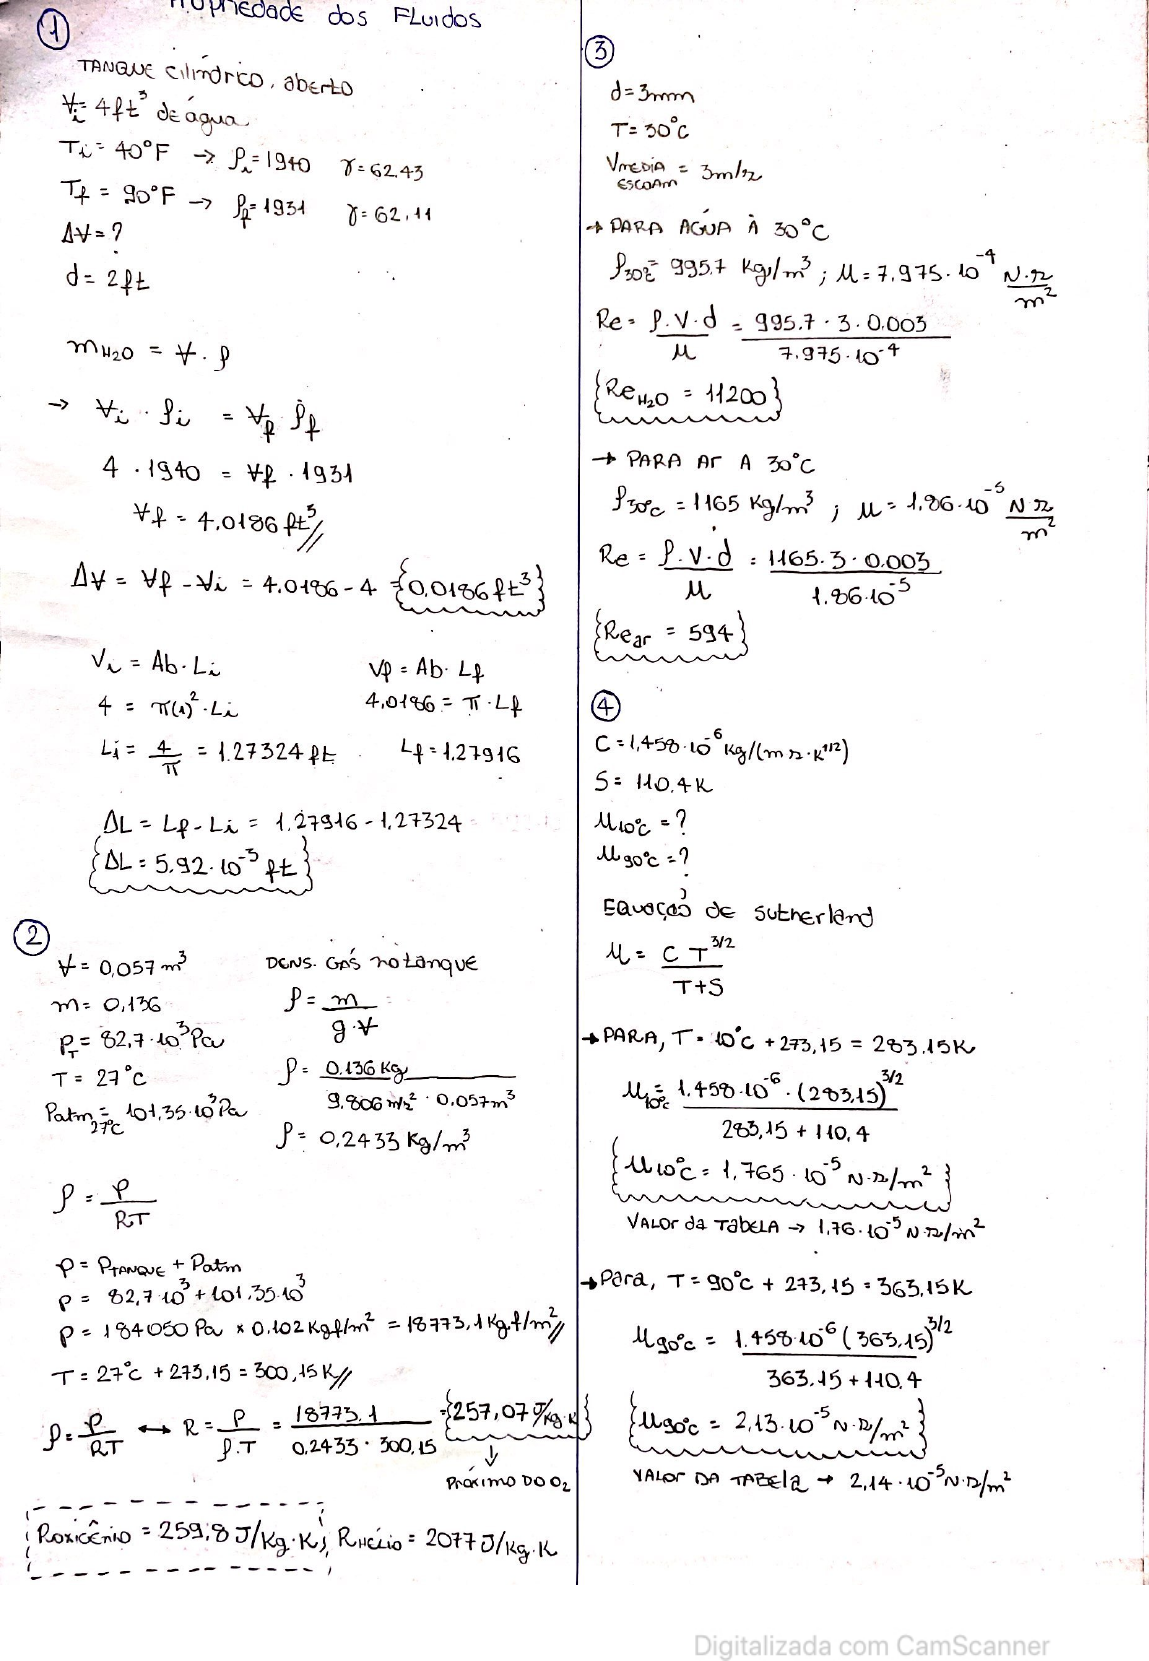 Propriedade dos Fluidos
①
TANQUE cilíndrico, aberto
V̶i = 4ft³ de água
Ti = 40°F → ρi = 1940 γ = 62,43
Tf = 90°F → ρf = 1931 γ = 62,11
ΔV̶ = ?
d = 2ft
mH2O = V̶ . ρ
→ V̶i . ρi = V̶f ρf
4 . 1940 = V̶f . 1931
V̶f = 4,0186 ft³//
ΔV̶ = V̶f - V̶i = 4,0186 - 4 = {0,0186 ft³}
Vi = Ab . Li Vf = Ab . Lf
4 = π(1)² . Li 4,0186 = π . Lf
Li = 4/π = 1,27324 ft Lf = 1,27916
ΔL = Lf - Li = 1,27916 - 1,27324
{ΔL = 5,92 . 10⁻³ ft}
②
V̶ = 0,057 m³ DENS. GÁS no tanque
m = 0,136 ρ = m / g . V̶
PT = 82,7 . 10³ Pa
T = 27°C ρ = 0,136 Kg / 9,806 m/s² . 0,057 m³
Patm 27°C = 101,35 . 10³ Pa
ρ = 0,2433 Kg/m³
ρ = P / RT
P = PTANQUE + Patm
P = 82,7 . 10³ + 101,35 . 10³
P = 184050 Pa x 0,102 Kgf/m² = 18773,1 Kgf/m²//
T = 27°C + 273,15 = 300,15 K//
ρ = P / RT ↔ R = P / ρ.T = 18773,1 / 0,2433 . 300,15 = {257,07 J/Kg.K}
↓
Próximo DO O2
Roxigênio = 259,8 J/Kg.K; RHélio = 2077 J/Kg.K
③
d = 3mm
T = 30°C
VMEDIA ESCOAM = 3m/s
→ PARA ÁGUA À 30°C
ρ30°C = 995,7 Kg/m³ ; μ = 7,975 . 10⁻⁴ N.s/m²
Re = ρ.V.d / μ = 995,7 . 3 . 0,003 / 7,975 . 10⁻⁴
{ReH2O = 11200}
→ PARA Ar A 30°C
ρ30°C = 1165 Kg/m³ ; μ = 1,86 . 10⁻⁵ N.s/m²
Re = ρ.V.d / μ = 1165 . 3 . 0,003 / 1,86 . 10⁻⁵
{Rear = 594}
④
C = 1,458 . 10⁻⁶ Kg/(m s . K^1/2)
S = 110,4 K
μ10°C = ?
μ90°C = ?
Equação de Sutherland
μ = C T^3/2 / T + S
→ PARA, T = 10°C + 273,15 = 283,15K
μ10°C = 1,458 . 10⁻⁶ . (283,15)^3/2 / 283,15 + 110,4
{μ10°C = 1,765 . 10⁻⁵ N.s/m²}
VALOr da Tabela → 1,76 . 10⁻⁵ N.s/m²
→ Para, T = 90°C + 273,15 = 363,15K
μ90°C = 1,458 . 10⁻⁶ (363,15)^3/2 / 363,15 + 110,4
{μ90°C = 2,13 . 10⁻⁵ N.s/m²}
VALOr DA TABEla → 2,14 . 10⁻⁵ N.s/m²
Digitalizada com CamScanner